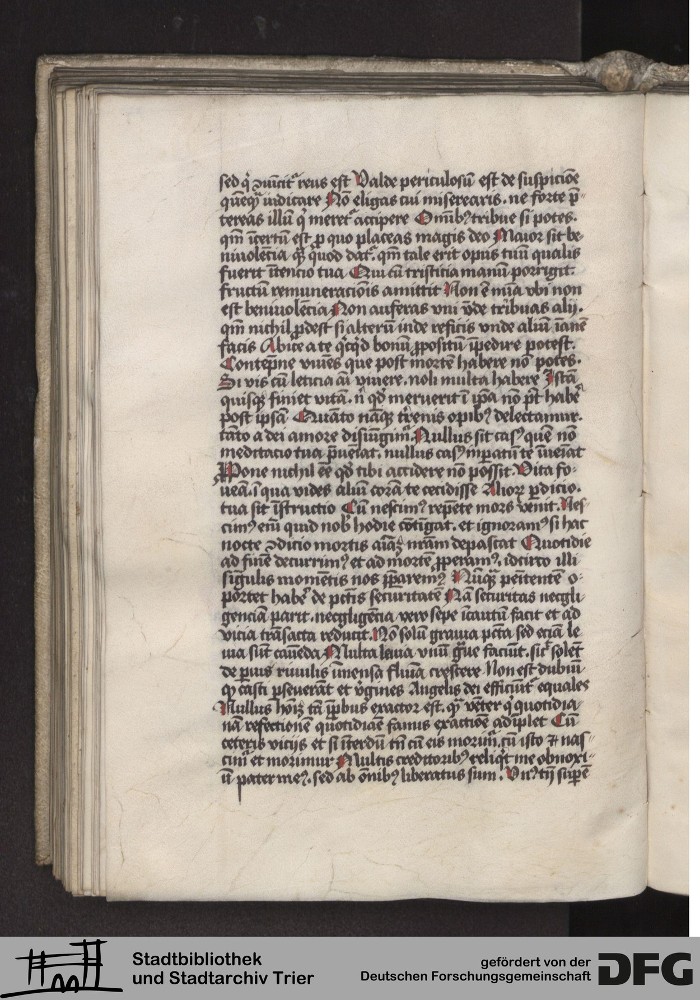 sed q̄ ꝯuīcit᷑ reus est Valde periculosū est de suspicioē
quēqȝ iudicare Nō eligas cui miserearis. ne forte p̄-
tereas illū q̄ meret᷑ accipere Omībꝰ tribue si potes.
qm̄ īcertū est p quo placeas magis deo Maior sit be-
niuolēcia qȝ quod dat᷑. qm̄ tale erit opus tuū qualis
fuerit ītencio tua Qui cū tristitia manū porrigit.
fructū remuneracōis amittit Non ē mīa vbi non
est beniuolēcia Non auferas vni vn̄de tribuas alij.
qm̄ nichil ꝓdest si alterū inde reficis vnde aliū ianē
facis Abīce a te qͥcqͥd bonū ꝓpositū īpedire potest.
Contēpne viuēs que post mortē habere nō potes.
Si vis cū leticia aī viuere. noli multa habere Istā
quisqȝ finiet vitā. n̄ qd̓ meruerit ī ip̄a nō pt̄ habē
post ipsā Quāto nāqȝ tr̄enis opibꝰ delectamur.
tāto a dei amore disiūgim᷑ Nullus sit casꝰ quē nō
meditacio tua p̄ueīat. nullus casꝰ inparatū te īueīat
Pone nichil ēe qd̓ tibi accidere nō possit. Vita fo-
ueā. ī qua vides aliū corā te cecidisse Alioꝝ ꝑdicio.
tua sit īstructio Cū nescimꝰ repēte mors venit. Nes-
cimꝰ enī quid nobꝰ hodie cōtīgat. et ignoramꝰ si hac
nocte ꝯdicio mortis aīaȝ nr̄am depascat Quotidie
ad finē decurrimꝰ et ad mortē ꝓperamꝰ. idcirco illi
sīgulis momētis nos p̄paremꝰ Nūqȝ peitentē o-
portet habē de pctīs securitatē Nā securitas necgli
genciā parit. necgligēcia vero sepe īcautū facit et ad
vicia trāsacta reducit. Nō solū grauia pctā sed eciā le
uia sūt cauēda Multa leuia vnū gͣue faciūt. sic᷑ solēt
de ꝑuis riuulis īmensa flūīa crescere Non est dubiū
qȝ casti ꝑseuerāt et v̓gines Angelis dei efficiūt᷑ equales
Nullus hoīȝ tā īpbus exactor est. qȝ vēter qͥ quotidia
nā refectionē quotidiāe famis exactiōe adiplet Cū
ceteris vicijs et si īterdū tn̄ cū eis morim᷑. cū isto ⁊ nas-
cim᷑ et morimur Multis creditoribꝰ reliqͥt me obnoxi-
ū pater meꝰ. sed ab ōnibꝰ liberatus sum.
Stadtbibliothek
und Stadtarchiv Trier
gefördert von der
Deutschen Forschungsgemeinschaft
DFG